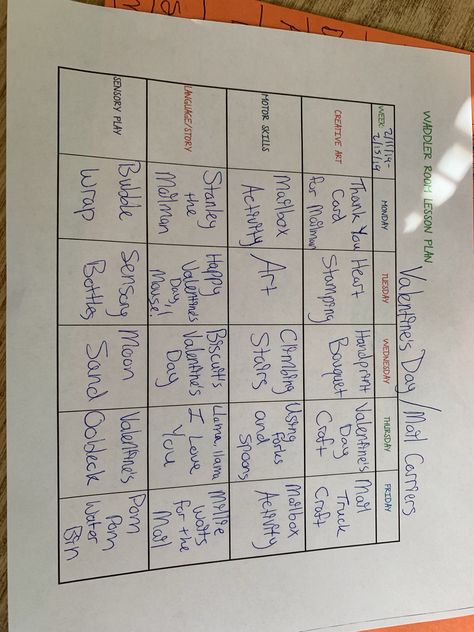 WADDLER ROOM LESSON PLAN
Valentine's Day / Mail Carriers
WEEK: 2/11/19-
2/15/19
MONDAY
TUESDAY
WEDNESDAY
THURSDAY
FRIDAY
CREATIVE ART
Thank You
Card
for Mailman
Heart
Stamping
Handprint
Bouquet
Valentine's
Day
Craft
Mail
Truck
Craft
MOTOR SKILLS
Mailbox
Activity
Art
Climbing
Stairs
Using
Forks
and
Spoons
Mailbox
Activity
LANGUAGE/STORY
Stanley
the
Mailman
Happy
Valentine's
Day,
Mouse!
Biscuit's
Valentine's
Day
Llama llama
I Love
You
Millie
Waits
for the
Mail
SENSORY PLAY
Bubble
Wrap
Sensoy
Bottles
Moon
Sand
Valentine's
Oobleck
Pom
Pom
Water
Bin